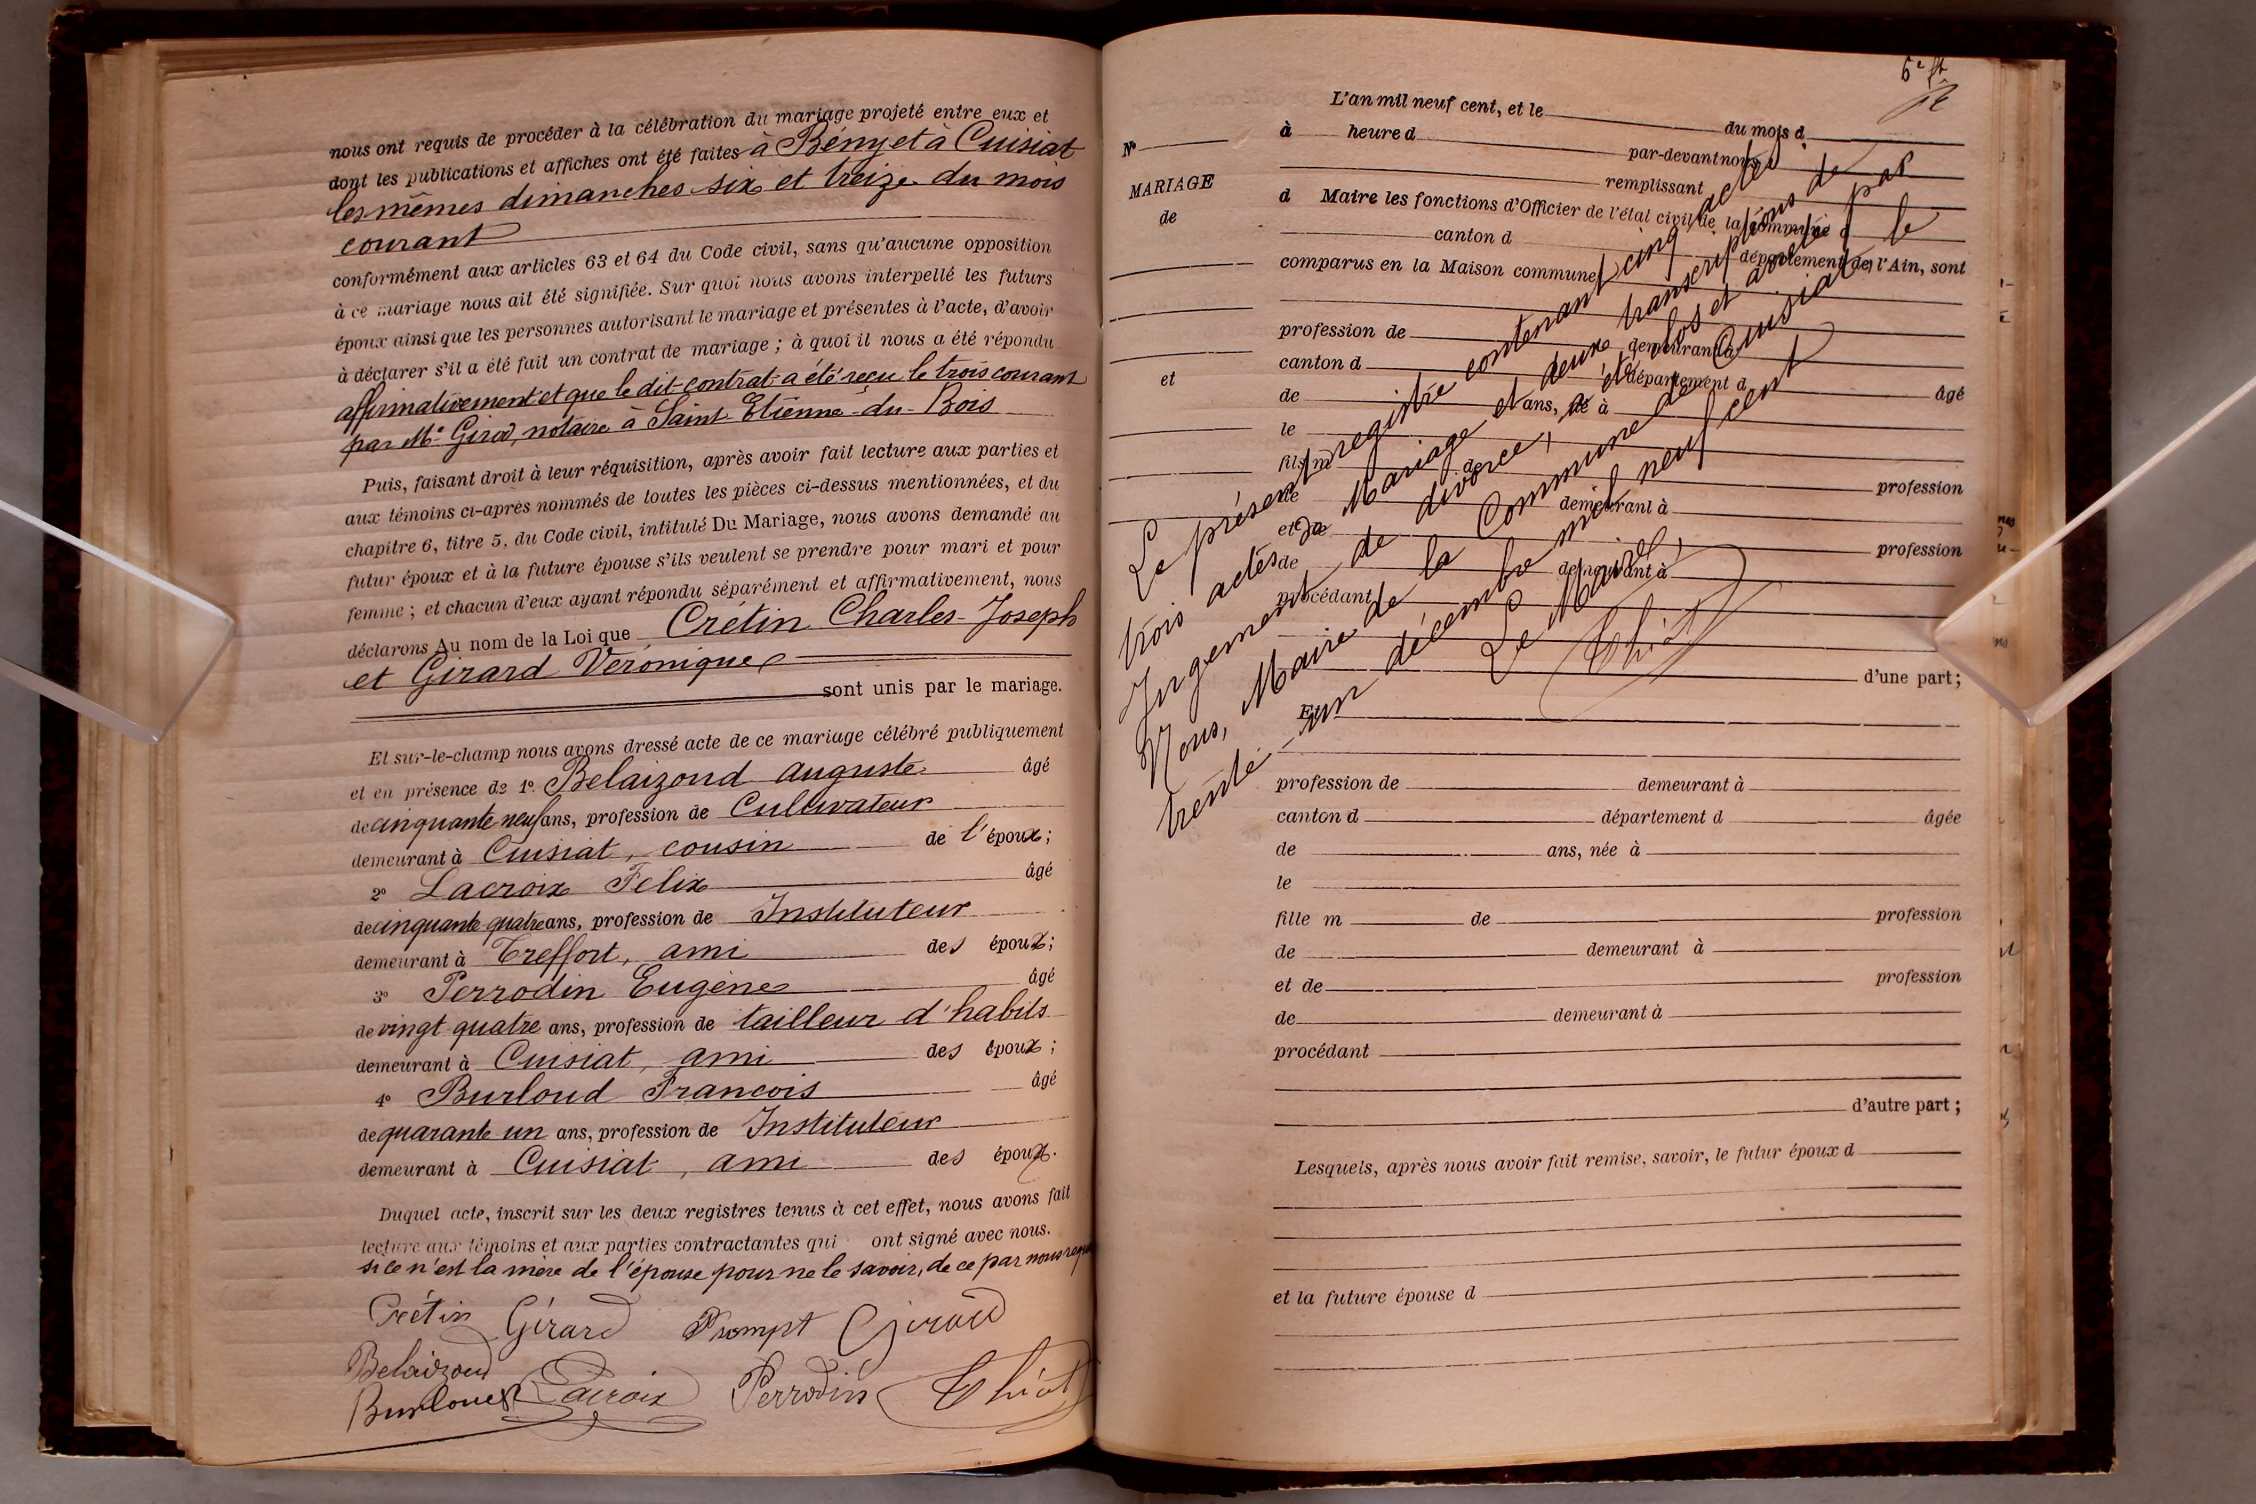 nous ont requis de procéder à la célébration du mariage projeté entre eux et
dont les publications et affiches ont été faites à Bény et à Cuisiat
les mêmes dimanches six et treize du mois
courant
conformément aux articles 63 et 64 du Code civil, sans qu'aucune opposition
à ce mariage nous ait été signifiée. Sur quoi nous avons interpellé les futurs
époux ainsi que les personnes autorisant le mariage et présentes à l'acte, d'avoir
à déclarer s'il a été fait un contrat de mariage ; à quoi il nous a été répondu
affirmativement et que le dit contrat a été reçu le trois courant
par Me Girod, notaire à Saint-Etienne-du-Bois
Puis, faisant droit à leur réquisition, après avoir fait lecture aux parties et
aux témoins ci-après nommés de toutes les pièces ci-dessus mentionnées, et du
chapitre 6, titre 5, du Code civil, intitulé Du Mariage, nous avons demandé au
futur époux et à la future épouse s'ils veulent se prendre pour mari et pour
femme ; et chacun d'eux ayant répondu séparément et affirmativement, nous
déclarons Au nom de la Loi que Crétin Charles-Joseph
et Girard Véronique
sont unis par le mariage.
Et sur-le-champ nous avons dressé acte de ce mariage célébré publiquement
et en présence de 1º Belaizoud Auguste âgé
de cinquante neuf ans, profession de Cultivateur
demeurant à Cuisiat, cousin de l'époux ;
2º Lacroix Félix âgé
de cinquante quatre ans, profession de Instituteur
demeurant à Treffort, ami des époux ;
3º Perrodin Eugène âgé
de vingt quatre ans, profession de tailleur d'habits
demeurant à Cuisiat, ami des époux ;
4º Burloud Francois âgé
de quarante un ans, profession de Instituteur
demeurant à Cuisiat, ami des époux.
Duquel acte, inscrit sur les deux registres tenus à cet effet, nous avons fait
lecture aux témoins et aux parties contractantes qui ont signé avec nous.
si ce n'est la mère de l'épouse pour ne le savoir, de ce par nous requis
Crétin Girard Prompt Girard
Belaizoud
Burloud Lacroix Perrodin Thiot
6e
Nº
MARIAGE
de
et
L'an mil neuf cent, et le du mois d
à heure d par-devant nous
remplissant
d Maire les fonctions d'Officier de l'état civil de la commune d
canton d département de l'Ain, sont
comparus en la Maison commune
profession de demeurant à
canton d département d âgé
de ans, né à
le
fils m de profession
de demeurant à
et de profession
de demeurant à
procédant
d'une part ;
Et
profession de demeurant à
canton d département d âgée
de ans, née à
le
fille m de profession
de demeurant à
et de profession
de demeurant à
procédant
d'autre part ;
Lesquels, après nous avoir fait remise, savoir, le futur époux d
et la future épouse d
Le présent registre contenant cinq actes
trois actes de Mariage et deux transcriptions de
Jugement de divorce, a été clos et arrêté par
Nous, Maire de la Commune de Cuisiat, le
trente-un décembre mil neuf cent
Le Maire,
Thiot